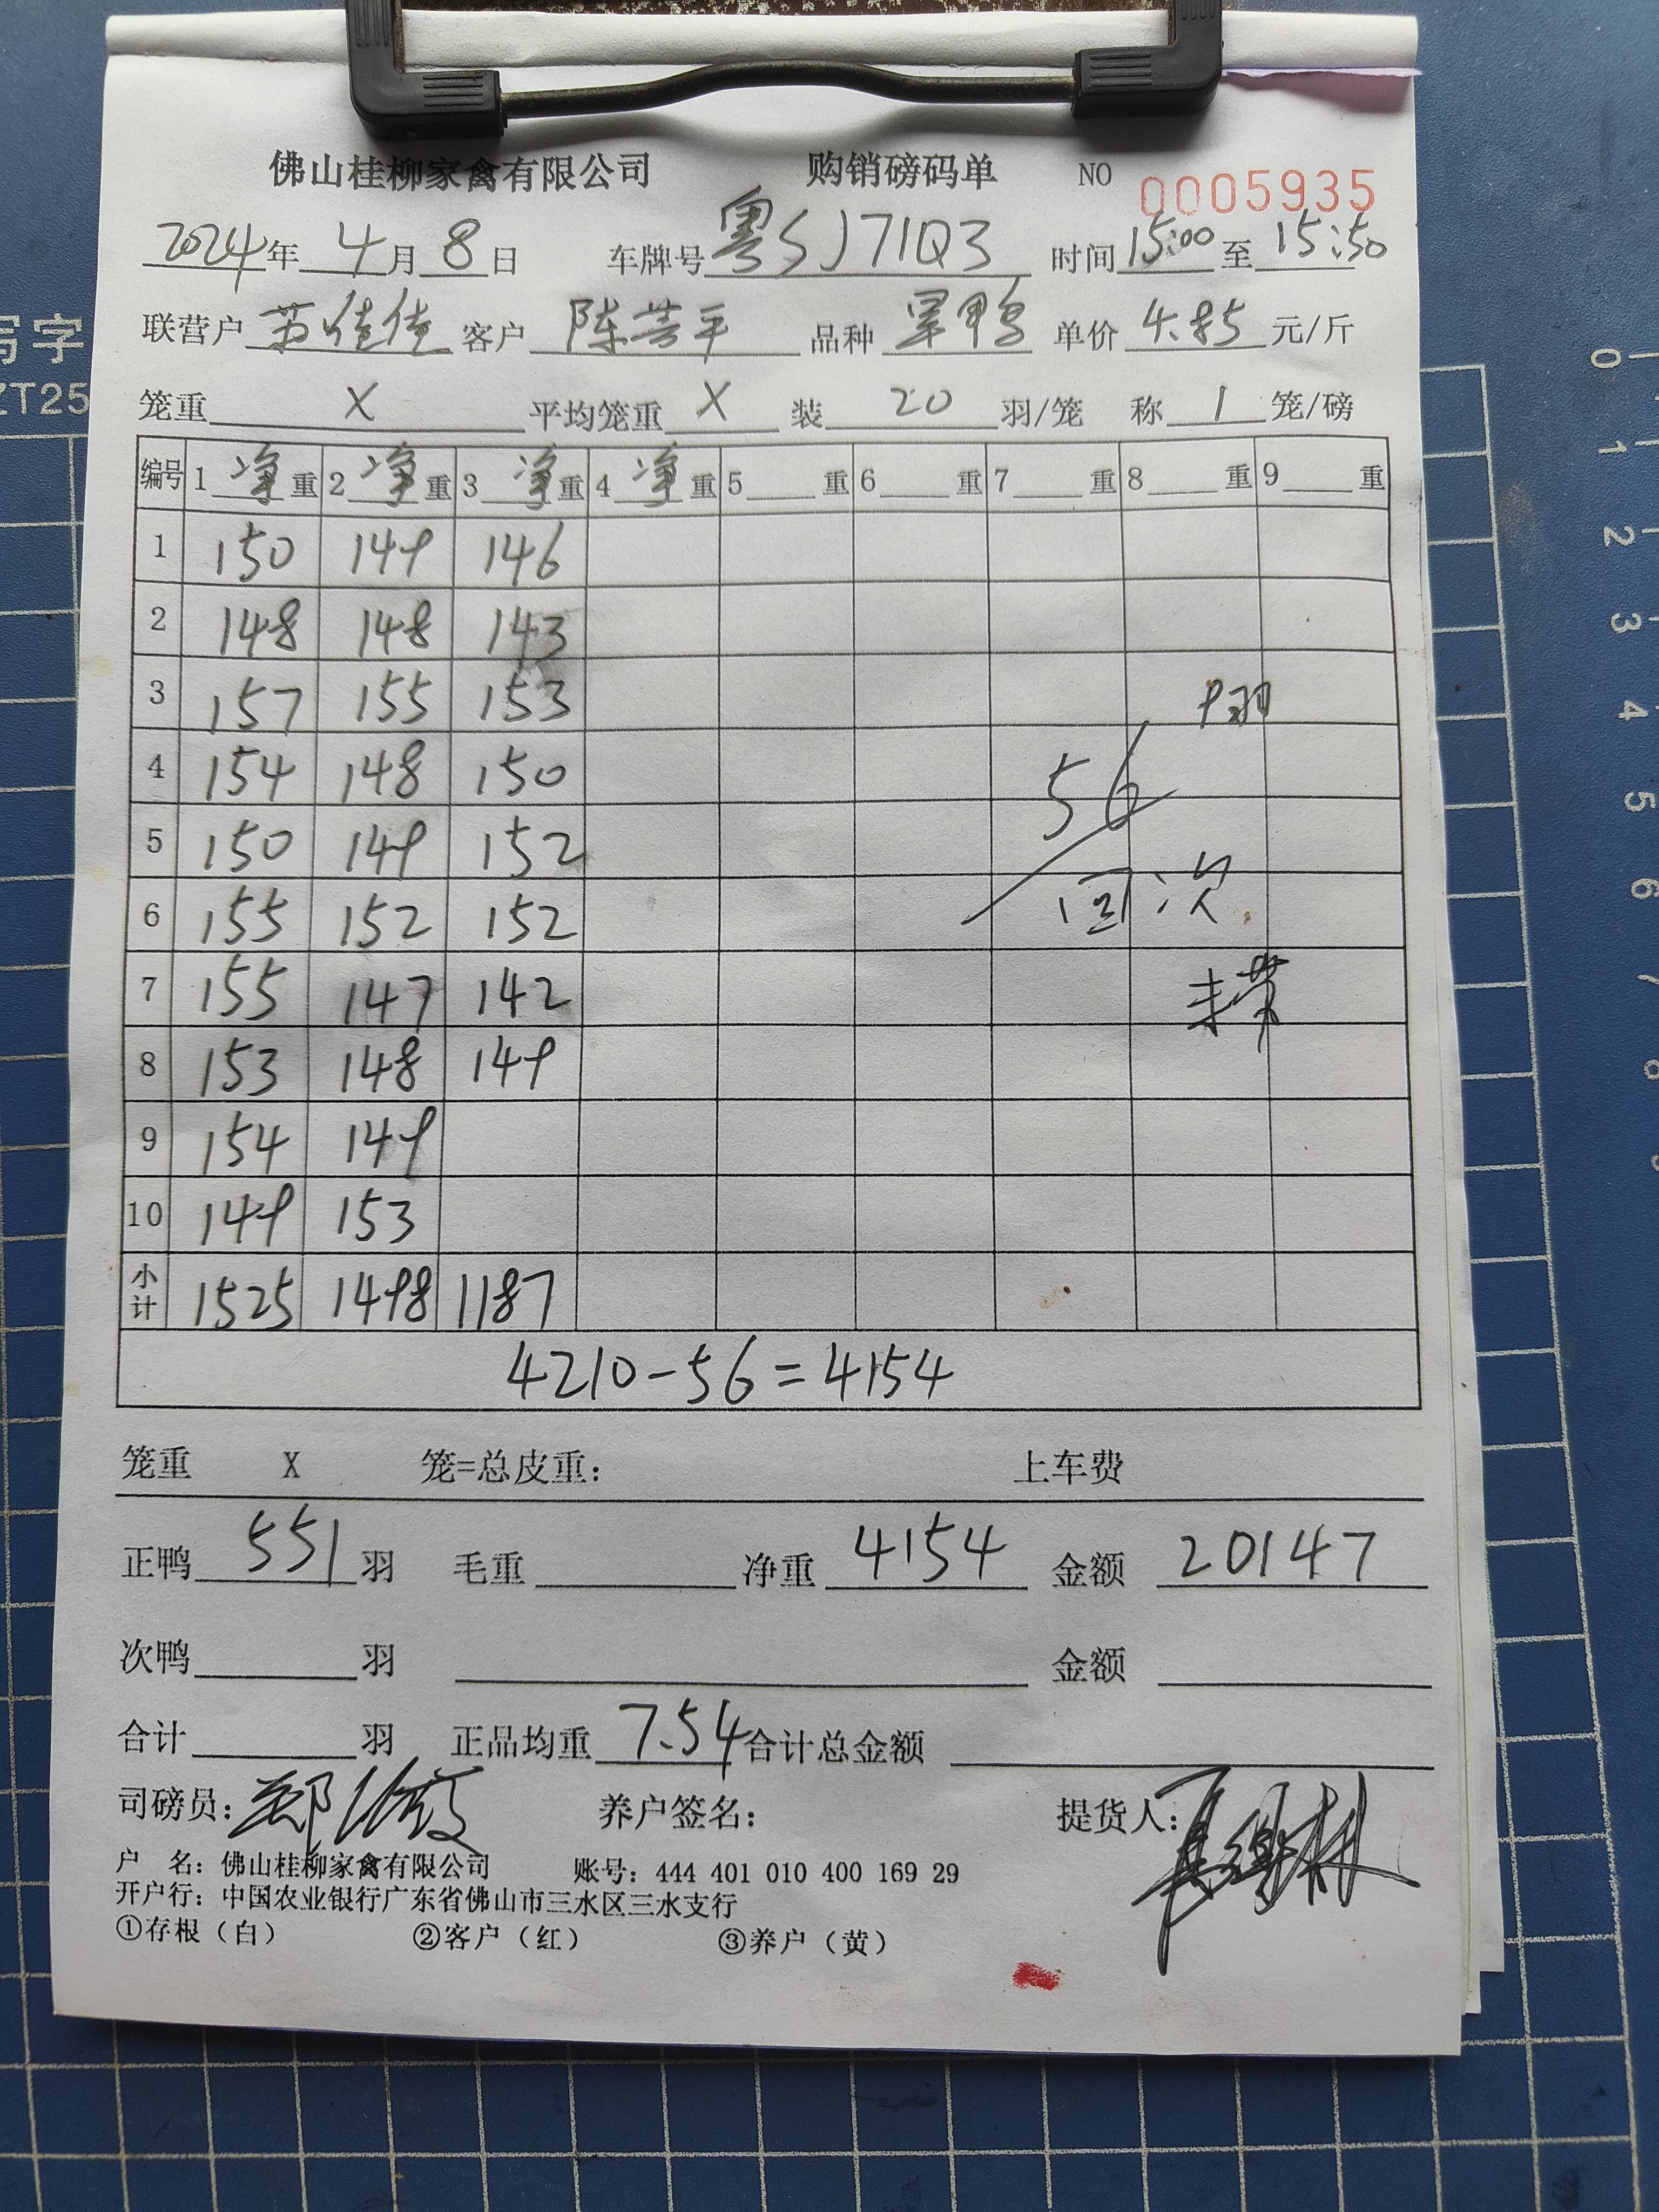 佛山桂柳家禽有限公司 购销磅码单 NO 0005935
2024年 4月 8日 车牌号 粤SJ71Q3 时间 15:00 至 15:50
联营户 苏佳佳 客户 陈芸平 品种 旱鸭 单价 4.85 元/斤
笼重 X 平均笼重 X 装 20 羽/笼 称 1 笼/磅
编号 1 净 重 2 净 重 3 净 重 4 净 重 5 重 6 重 7 重 8 重 9 重
1 150 149 146
2 148 148 143
3 157 155 153
9羽
4 154 148 150
56
5 150 149 152
6 155 152 152
回次
7 155 147 142
未带
8 153 148 149
9 154 149
10 149 153
小计 1525 1498 1187
4210-56=4154
笼重 X 笼=总皮重: 上车费
正鸭 551 羽 毛重 净重 4154 金额 20147
次鸭 羽 金额
合计 羽 正品均重 7.54 合计总金额
司磅员: 养户签名: 提货人:
户 名: 佛山桂柳家禽有限公司 账号: 444 401 010 400 169 29
开户行: 中国农业银行广东省佛山市三水区三水支行
①存根（白） ②客户（红） ③养户（黄）
写字
ZT25
0
1
2
3
4
5
6
7
8